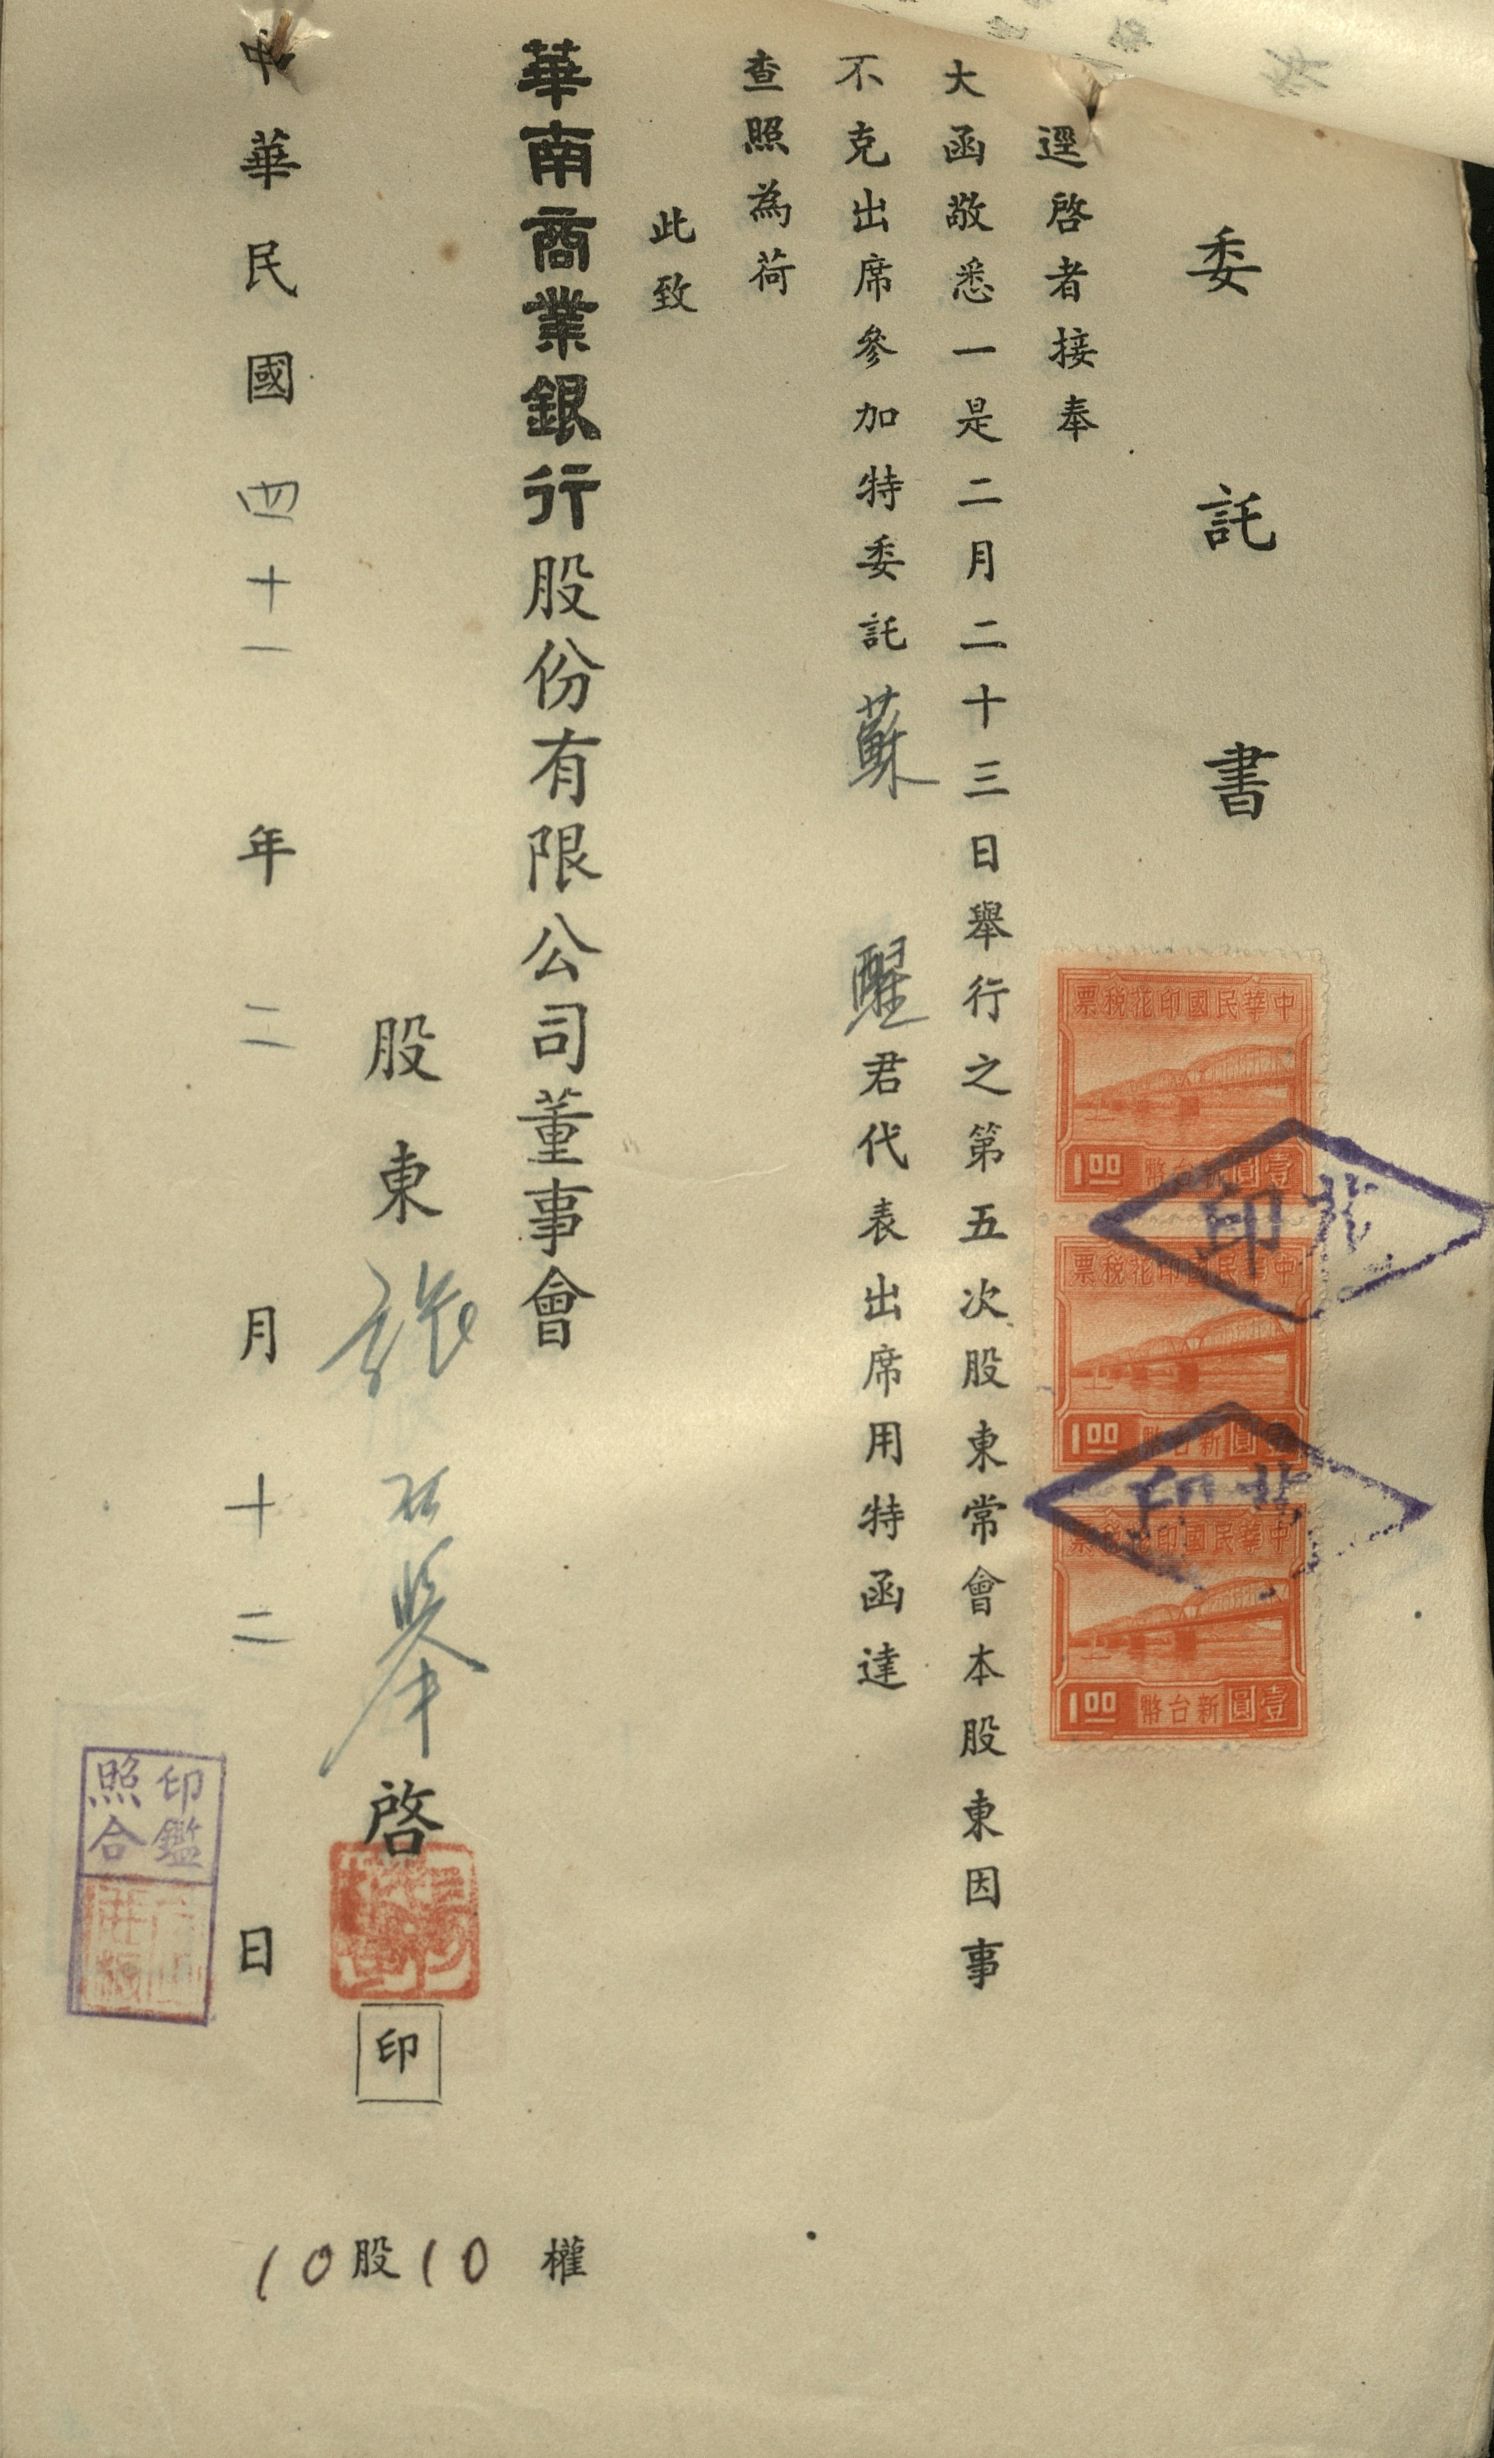 委託書
逕啓者接奉
大函敬悉一是二月二十三日舉行之第五次股東常會本股東因事
不克出席參加特委託蘇醒君代表出席用特函達
查照為荷
此致
華南商業銀行股份有限公司董事會
股東張 啓
印
中華民國四十一年二月十二日
10股10權
中華民國印花稅票
1.00 壹圓新台幣
中華民國印花稅票
1.00 壹圓新台幣
中華民國印花稅票
1.00 壹圓新台幣
印花
印花
印鑑
照合